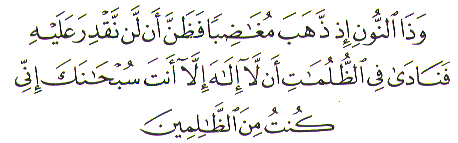 وَذَا ٱلنُّونِ إِذ ذَّهَبَ مُغَٰضِبًا فَظَنَّ أَن لَّن نَّقْدِرَ عَلَيْهِ
فَنَادَىٰ فِي ٱلظُّلُمَٰتِ أَن لَّآ إِلَٰهَ إِلَّآ أَنتَ سُبْحَٰنَكَ إِنِّي
كُنتُ مِنَ ٱلظَّٰلِمِينَ